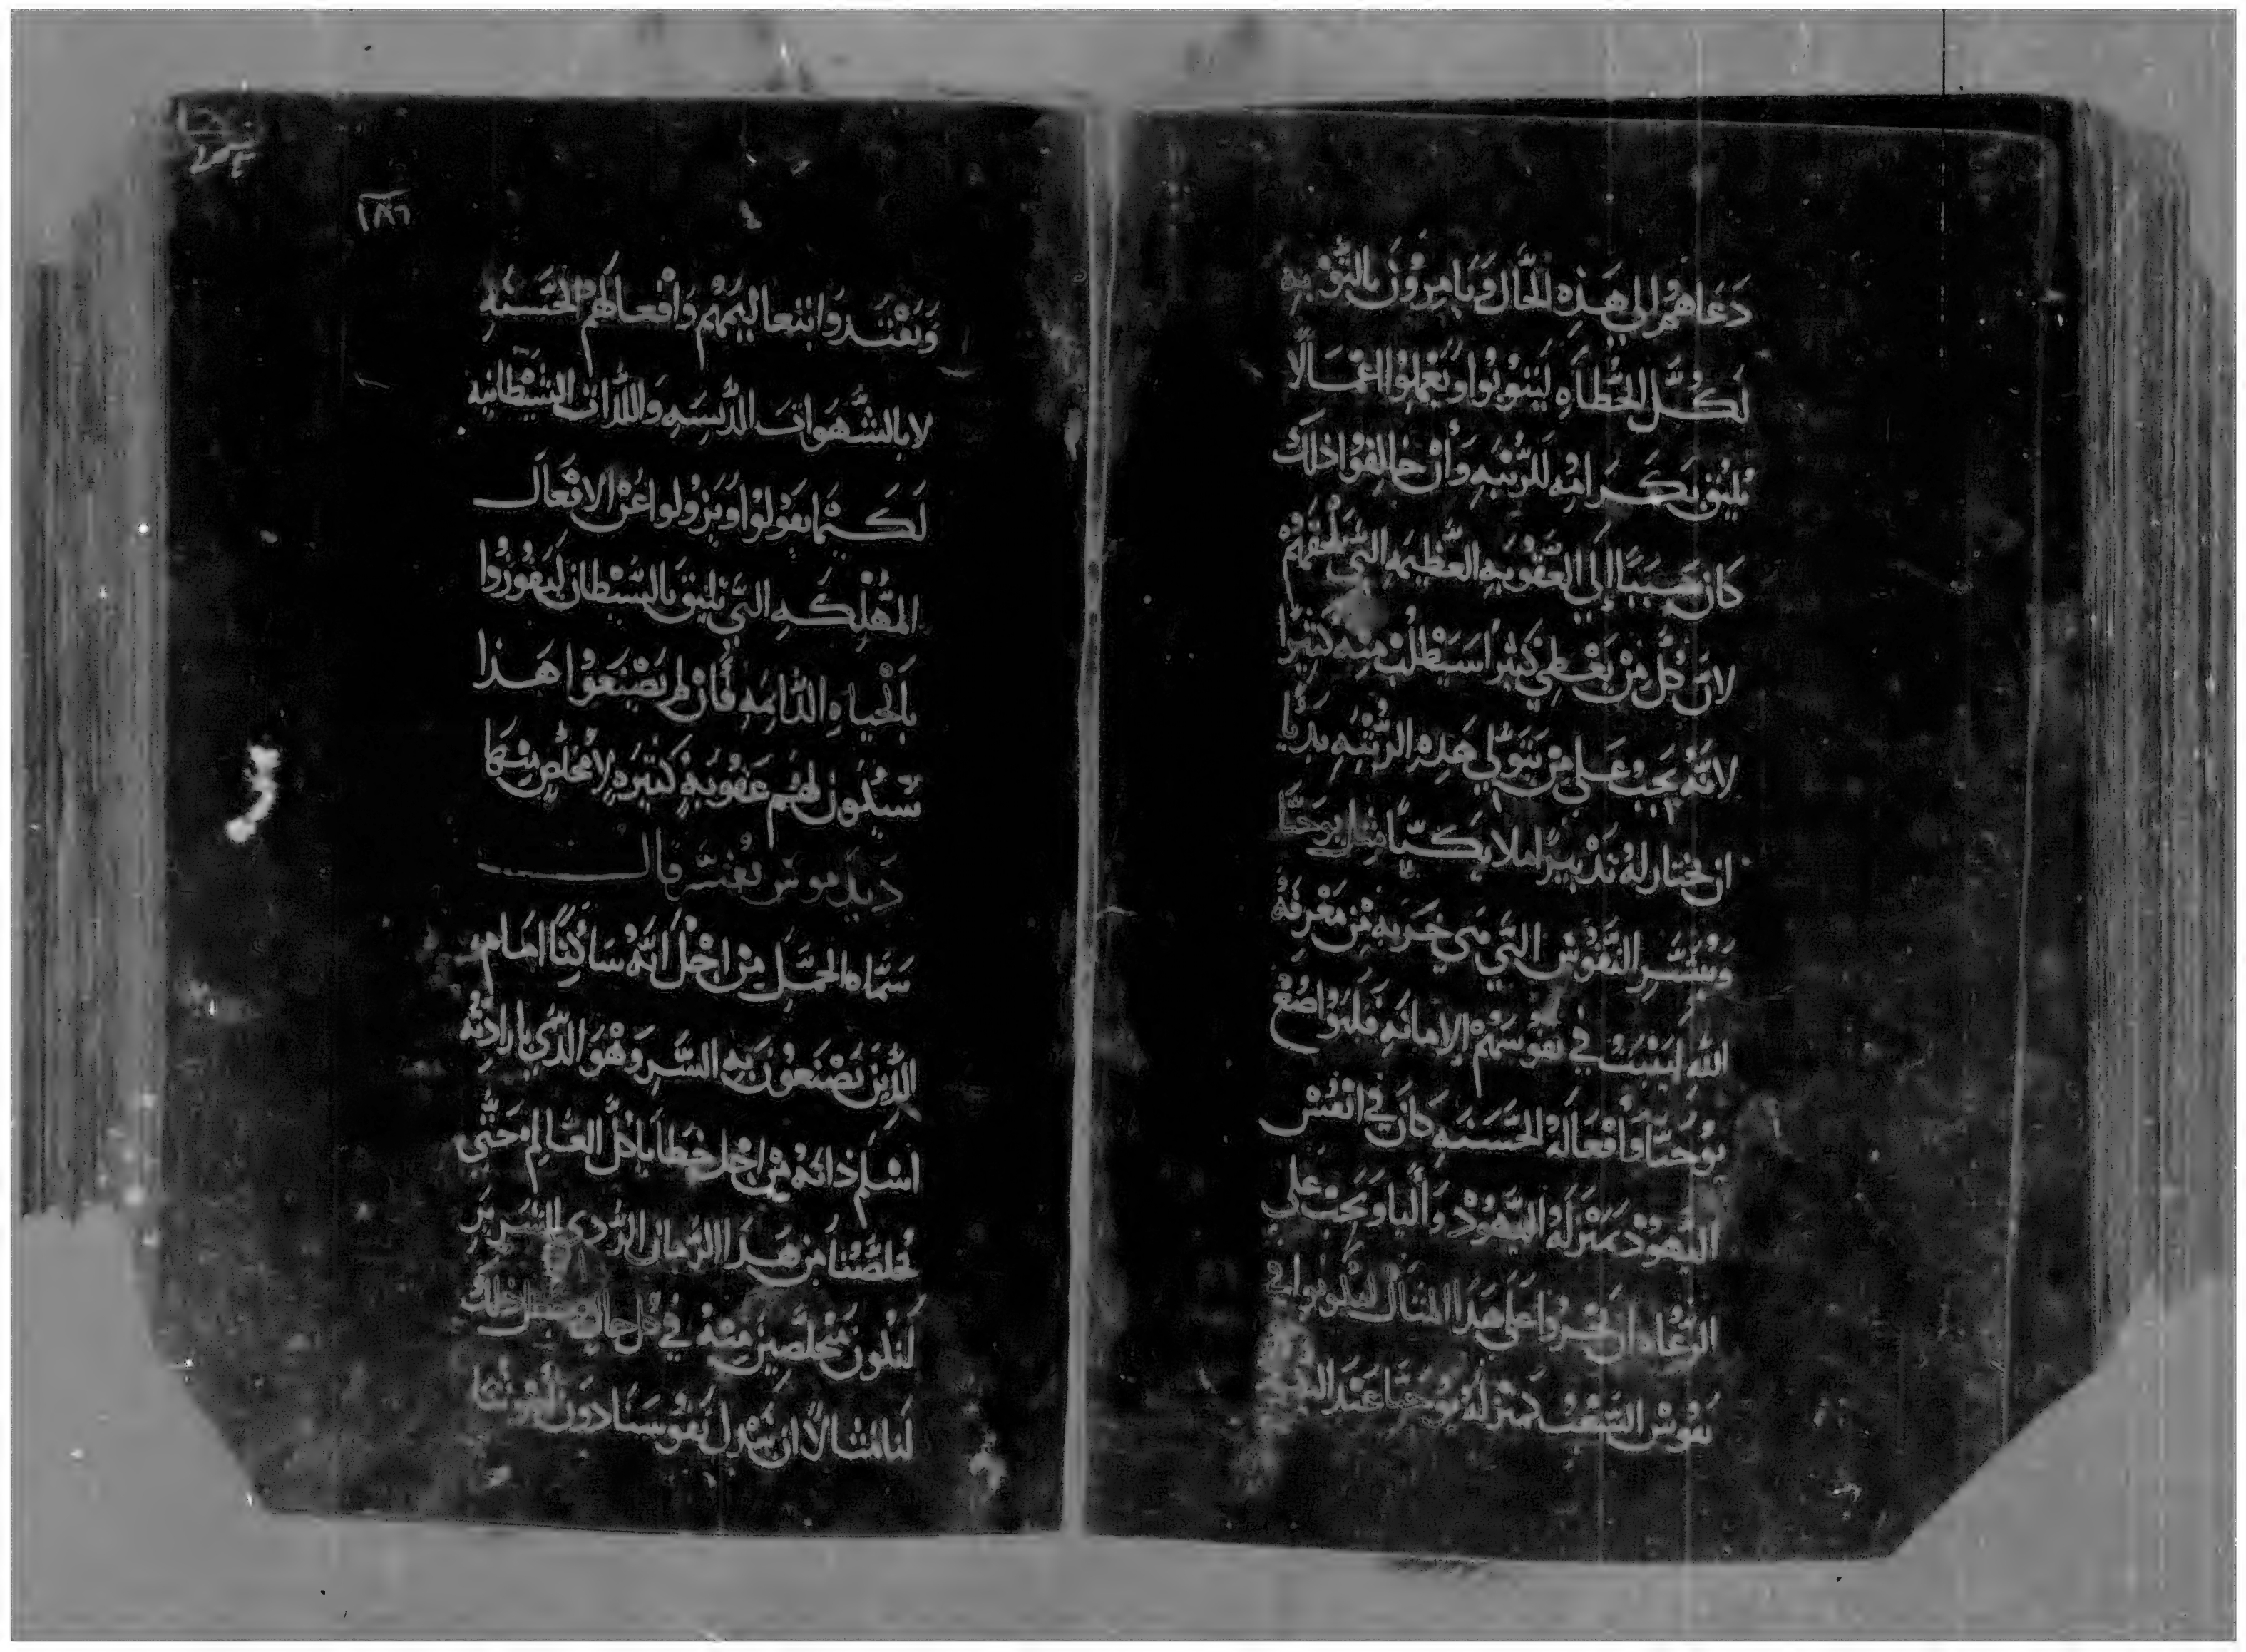 دَعَاهُم الي هَذِهِ الحَّال وَيَامِرُوْنَ بِالتَّوْبه
لَكُلَّ الخَّطاَه لَيَتوُبُوا وَيَعَملوُا اعْمَالًا
تليق بَكَرامُه للرُتبَه وَأنْ خالفوُا ذلك
كَان سَببًا إلي العَقُوبه العَّظيمَه التي تلحَقهمْ
لانَّ كُل مَنْ يعْطي كثيراً سَيَطلبْ مِنِه كتيرًا
لانَّهُ يَجبْ عَلي مَن يَتوَلي هَذِه الرُتبَه بديًا
ان يختار لهُ تَدْبيرًا ملايكيًّا مثل يوحَنَّا
وَيُبَشَّر النفوُسْ التَّي هي خَربه مْن مَعْرفَة
الله ليَنبت في نفوسَهُمْ الامانَه فلتوَاضعْ
يوُحَنَّا وَافعَالهُ الحَّسَنَه كَان في انفُسْ
اليَّهوُدْ بمَنزلَة اليَهوُدْ وَأليا وَيَجبْ عَلي
الرَّعَاه ان يجروا عَلي هَذا المثال ليَكونوا في
نفوسْ الشعْب بمَنزلة يوُحَنَّا عَنْد
١٨٦
وَيَقْتَدوا بتَعاليمَهُم وَافْعالهَمُ الحَّسَنَه
لا بالشَّهوَات الدَّنسِه وَاللذات الشيَّطانيه
لَكيْمَا يَقوُلوُا وَيَزوُلوا عَنْ الافْعَال
المُّهلكَه التَّي تليق بَالشَّيْطان ليَفوُزوُا
بالحْياه الدَّايمَه فَان لم يَصْنَعَوُا هَذا
سَيكُون لهُم عَقوُبه كتيَره لا مخلص مِنهَا
دَيديموسْ يُفسَّر قال
سَمَّاه الحمَّل مِنْ اجْل انَّهْ سَاكتًا امَام
اللذين يَصْنَعوُن به الشَّر وَهْوَ الذَّي بارادَتهُ
اسْلم ذاتهُ مْن اجْل خطايا كل العَّالم حَتَّي
يُخلصَّنا مْن هَذا الزَّمان الرَّدي الشرير
لَنكون مَتخلصين مِنهُ في كل حال
لَنا مثالاً ان نَبْذل نَفوُسنَا دوُنَ